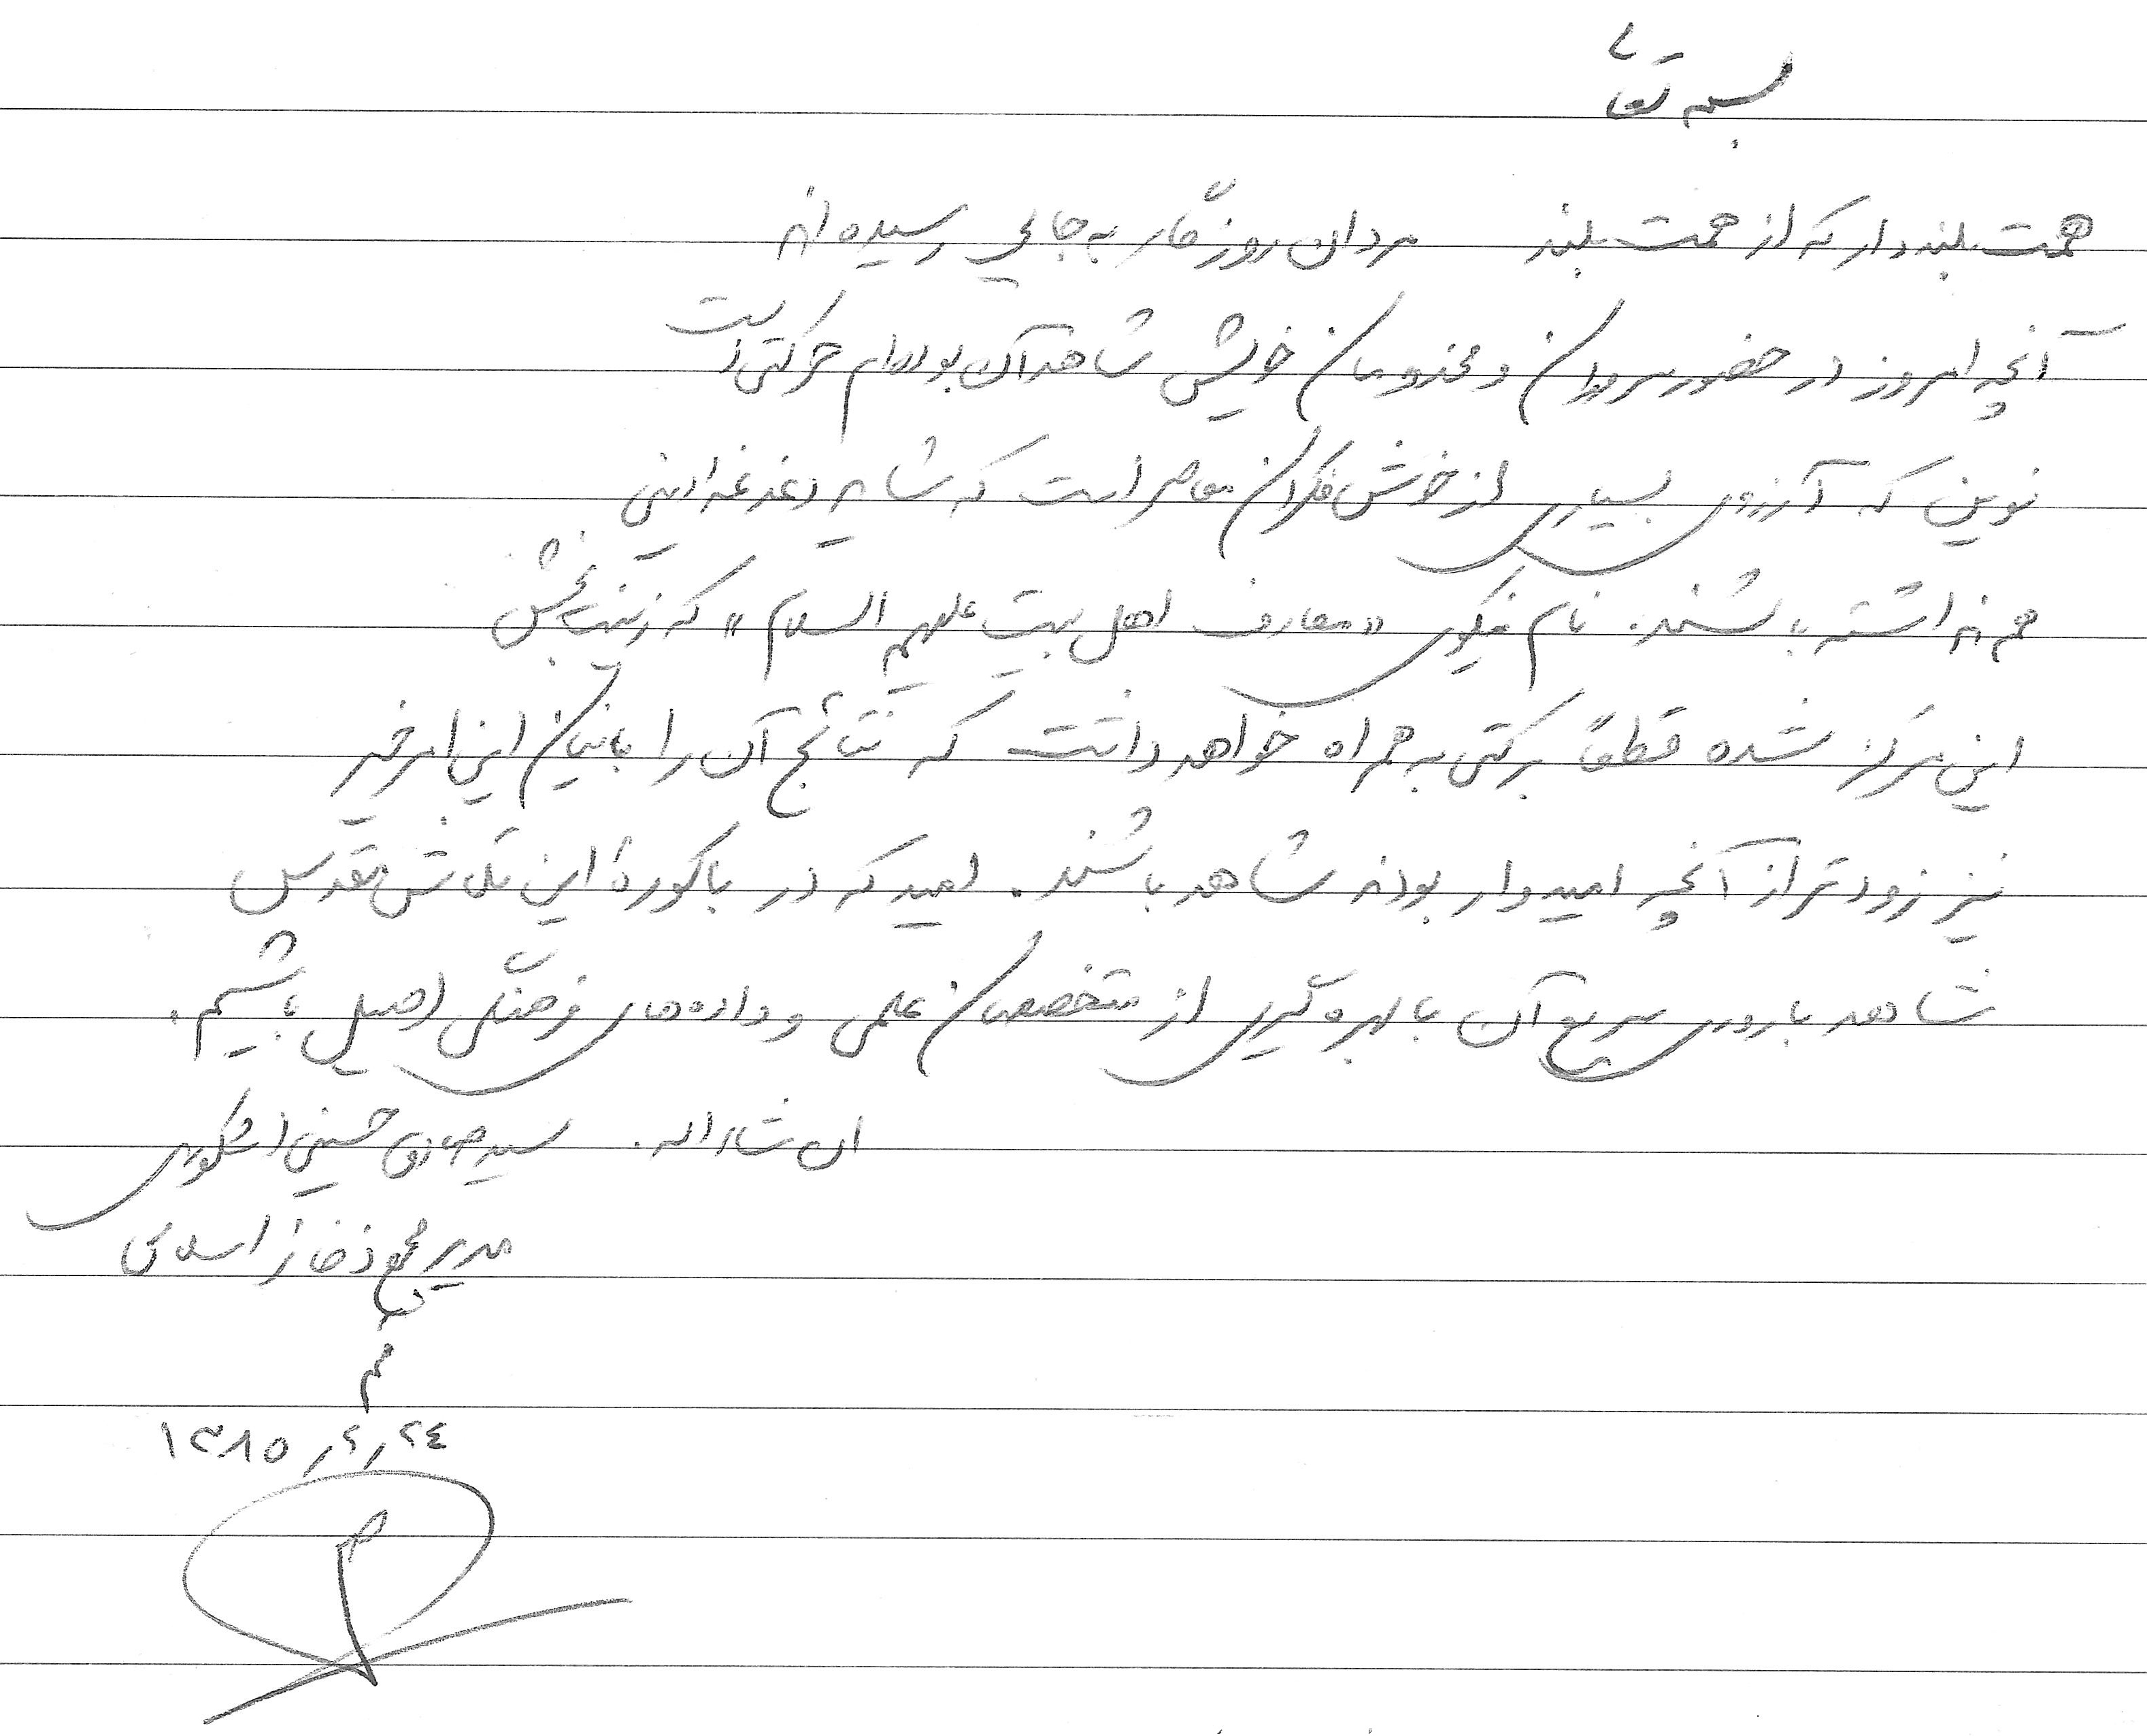 بسمه تعالی
همت بلند دار که از همت بلند مردان روزگار به جائی رسیده‌اند
آنچه امروز در حضور سروران و مخدومان خویش شاهد آن بوده‌ام حرکتی است
نوین که آرزوی بسیاری از خوش فکران معاصر است که شاید دغدغه دینی
هم نداشته باشند. نام نیکوی «معارف اهل بیت علیهم السلام» که زینت‌بخش
این مرکز شده قطعاً برکتی به همراه خواهد داشت که نتائج آن را بانیان این امر خیر
نیز زودتر از آنچه امیدوار بودند شاهد باشند. امید که در باکورهٔ این تلاش مقدس
شاهد باروری سریع آن با بهره‌گیری از متخصصان علمی و داده‌های فرهنگی اصیل باشیم.
ان شاء الله. سید صادق حسینی اشکوری
مدیر مجمع ذخائر اسلامی
قم
۱۳۸۵